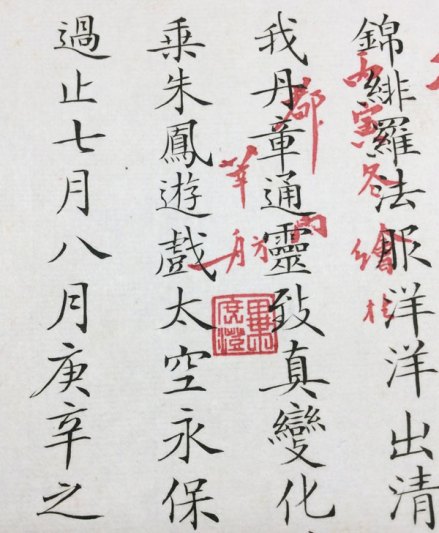 錦緋羅法服洋洋出清
我丹章通靈致真變化
乘朱鳳遊戲太空永保
過止七月八月庚辛之
寅冬繪於
都
舫